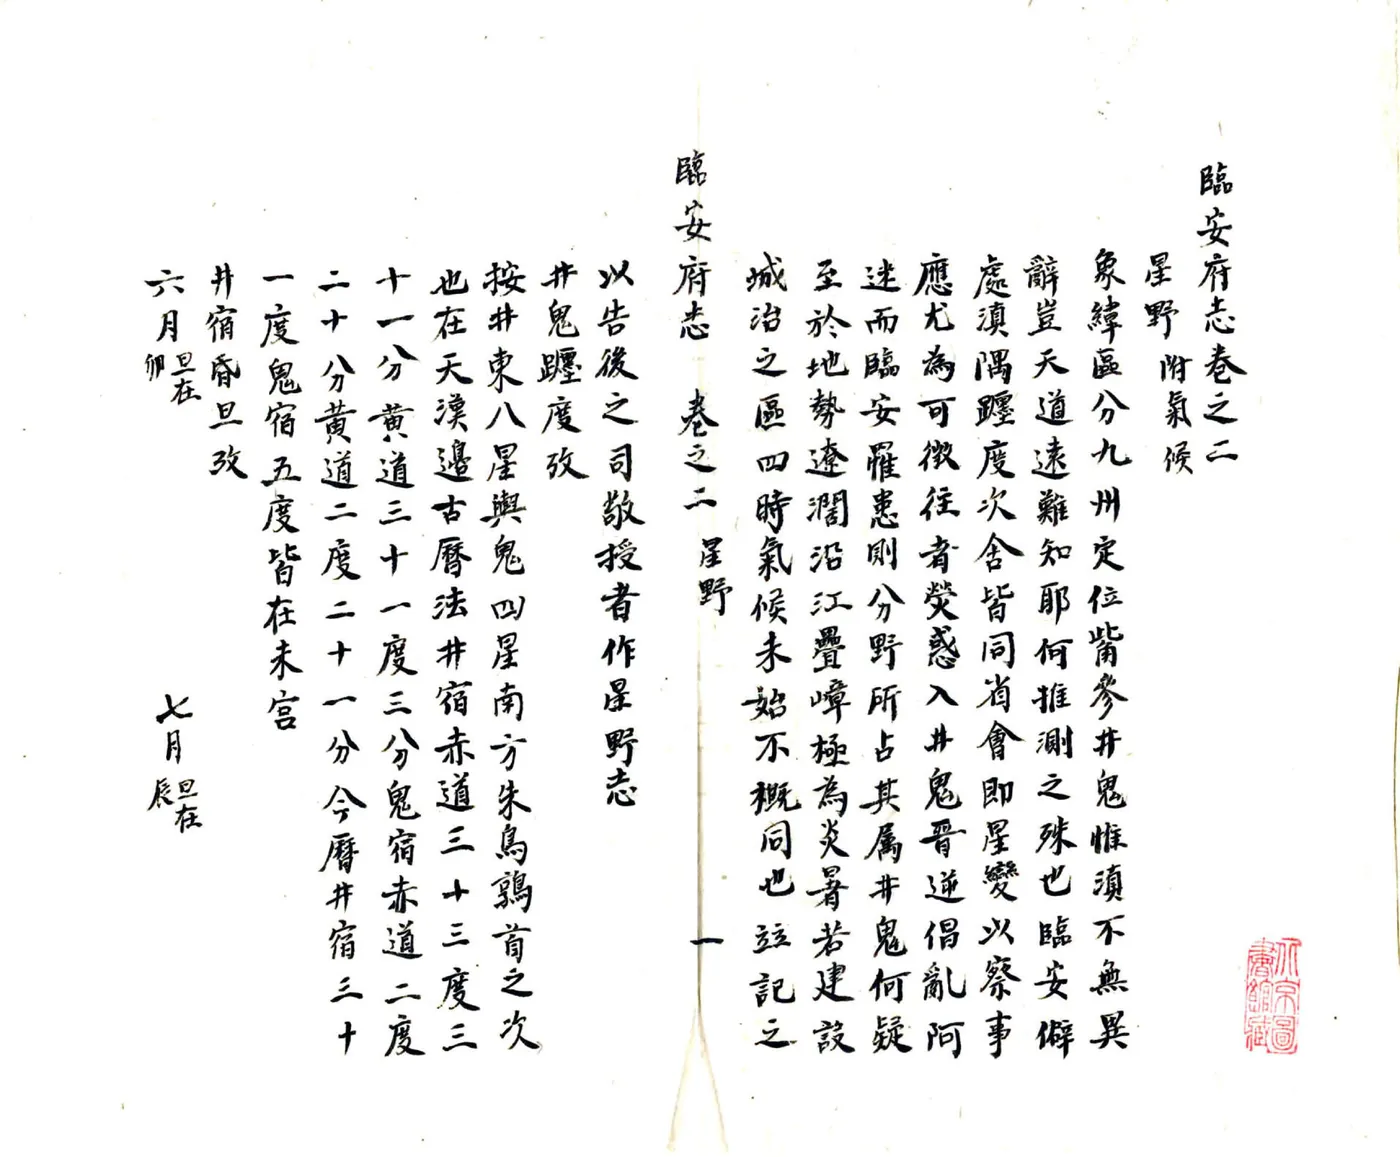 臨安府志卷之二
星野 附氣候
象緯區分九州定位觜參井鬼惟滇不無異
辭豈天道遠難知耶何推測之殊也臨安僻
處滇隅躔度次舍皆同省會即星變以察事
應尤為可徵往者熒惑入井鬼晋逆倡亂阿
迷而臨安罹患則分野所占其属井鬼何疑
至於地勢遼濶沿江疊嶂極為炎暑若建設
城治之區四時氣候未始不概同也竝記之
臨安府志 卷之二 星野 一
以告後之司敬授者作星野志
井鬼躔度攷
按井東八星輿鬼四星南方朱鳥鶉首之次
也在天漢邊古曆法井宿赤道三十三度三
十一分黃道三十一度三分鬼宿赤道二度
二十分黃道二度二十一分今曆井宿三十
一度鬼宿五度皆在未宮
井宿昏旦攷
六月旦在卯 七月旦在辰
北京圖書館藏